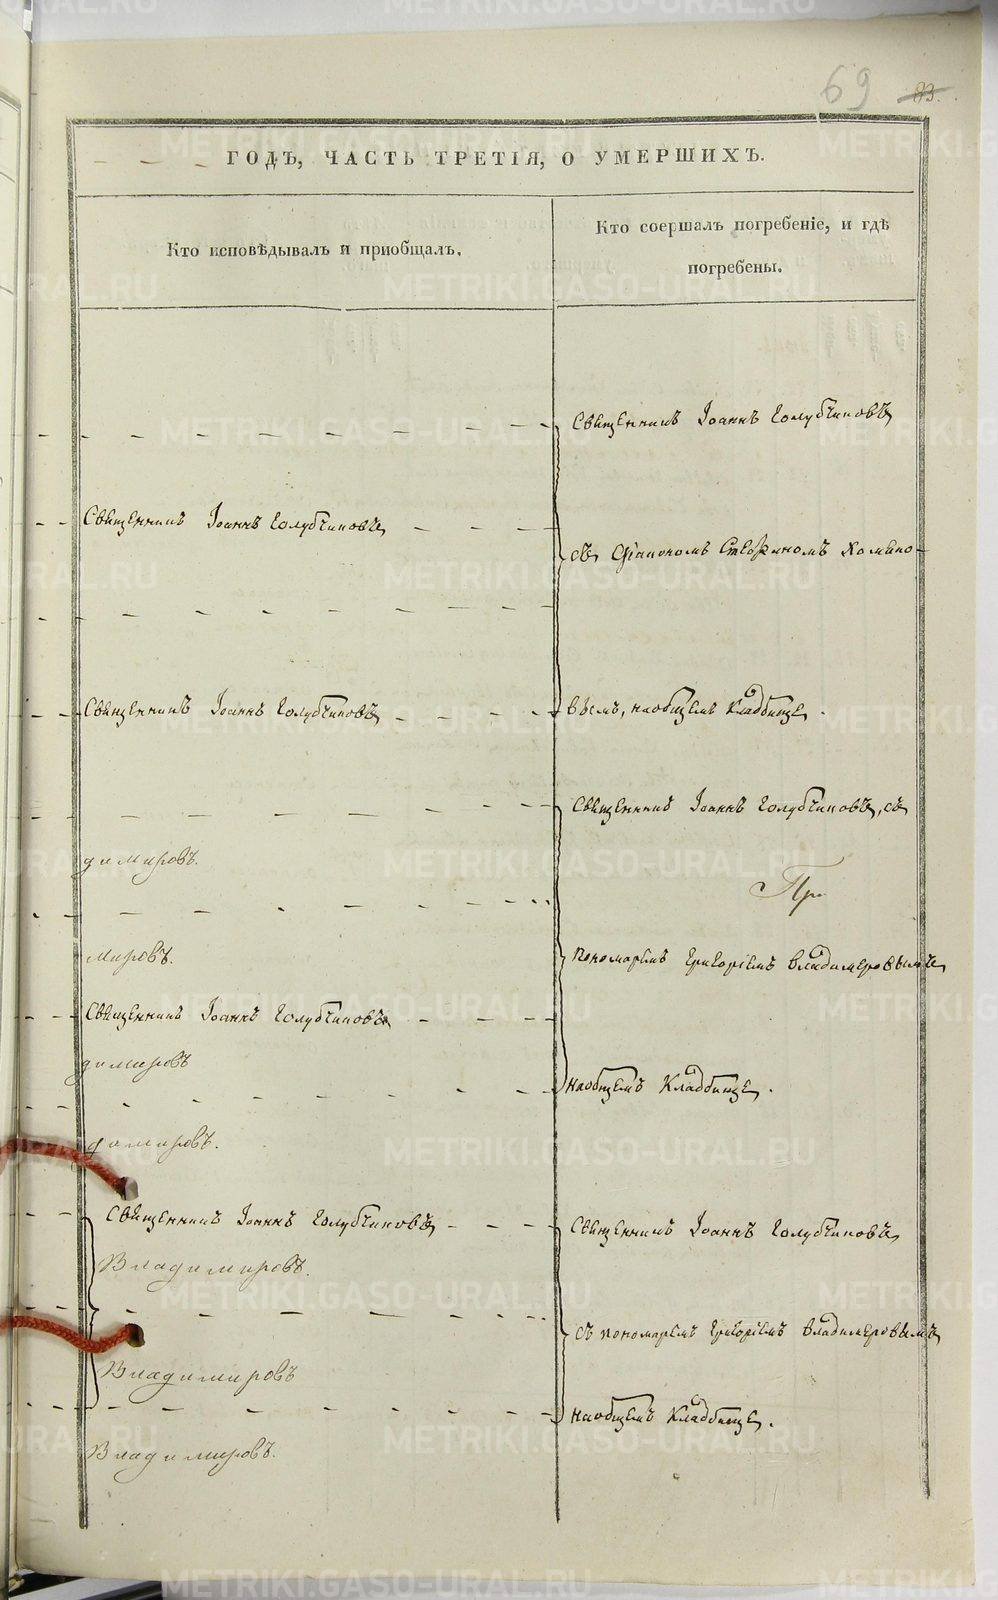 69 83.
ГОДЪ, ЧАСТЬ ТРЕТІЯ, О УМЕРШИХЪ.
Кто исповѣдывалъ и пріобщалъ.
Кто соершалъ погребеніе, и гдѣ
погребены.
Священникъ Іоаннъ Голубчиковъ
Священникъ Іоаннъ Голубчиковъ
съ Діакономъ Стефаномъ Хомяко-
Священникъ Іоаннъ Голубчиковъ
вымъ, на общемъ кладбище.
Священникъ Іоаннъ Голубчиковъ, съ
димировъ.
При
мировъ.
пономаремъ Григоріемъ Владимеровымъ
Священникъ Іоаннъ Голубчиковъ
димировъ
на общемъ кладбище.
димировъ.
Священникъ Іоаннъ Голубчиковъ
Священникъ Іоаннъ Голубчиковъ
Владимировъ.
съ пономаремъ Григоріемъ Владимеровымъ
Владимировъ
на общемъ кладбище.
Владимировъ.
METRIKI.GASO-URAL.RU